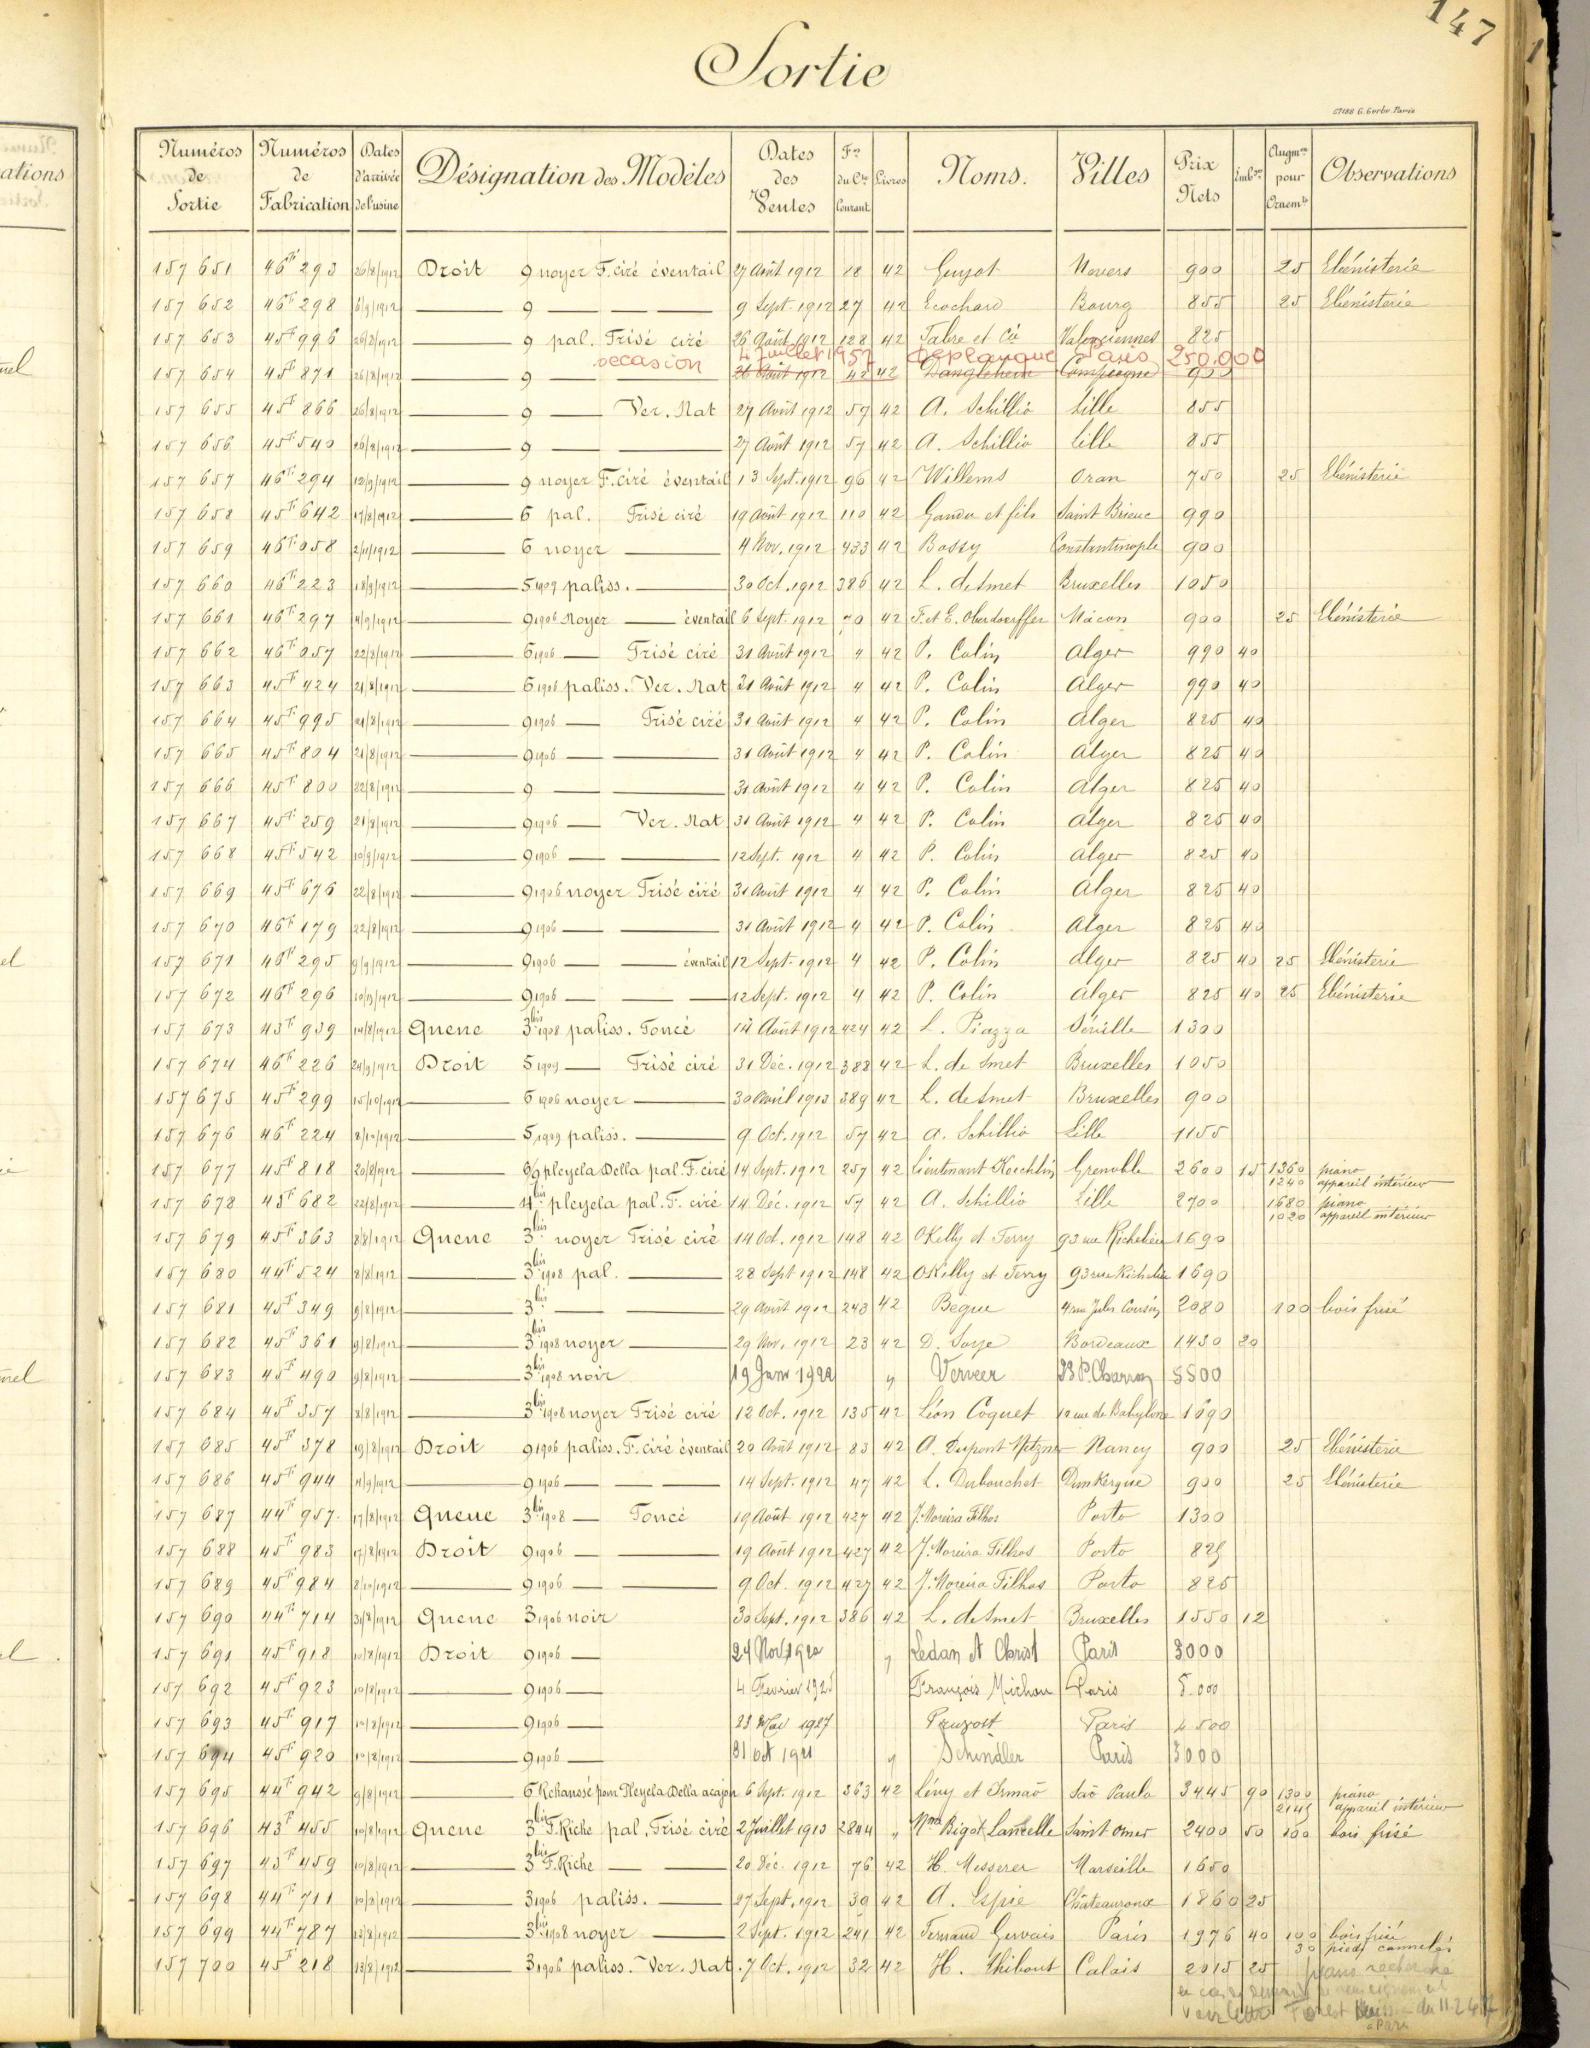 147
Sortie
Numéros de Sortie Numéros de Fabrication Dates d'arrivée de l'usine Désignation des Modèles Dates des Ventes Fos du Cte Courant Livres Noms. Villes Prix Nets Emb. Augm. pour Ornem. Observations
157 651 46F 293 26/8/1912 Droit 9 noyer F. ciré éventail 27 Août 1912 18 42 Guyot Nevers 900 25 Ebénisterie
157 652 46F 298 6/9/1912 9 9 Sept. 1912 27 42 Ecochard Bourg 855 25 Ebénisterie
157 653 45F 996 26/8/1912 9 pal. Frisé ciré 26 Août 1912 128 42 Fabre et Cie Valenciennes 825
occasion 4 Juillet 1957 Deplanque Paris 250.000
157 654 45F 871 26/8/1912 9 26 Août 1912 42 42 Compiegne 900
157 655 45F 866 26/8/1912 9 Ver. Nat 27 Août 1912 57 42 A. Schillio Lille 855
157 656 45F 540 26/8/1912 9 27 Août 1912 57 42 A. Schillio Lille 855
157 657 46F 294 12/9/1912 9 noyer F. ciré éventail 13 Sept. 1912 96 42 Willems Oran 750 25 Ebénisterie
157 658 45F 642 17/8/1912 6 pal. Frisé ciré 19 Août 1912 110 42 Gandu et fils Saint Brieuc 990
157 659 46F 058 2/11/1912 6 noyer 4 Nov. 1912 433 42 Bossy Constantinople 900
157 660 46F 223 18/9/1912 5 1909 paliss. 30 Oct. 1912 386 42 L. de Smet Bruxelles 1050
157 661 46F 297 4/9/1912 9 1906 Noyer éventail 6 Sept. 1912 70 42 F. et E. Oberdoerffer Mâcon 900 25 Ebénisterie
157 662 46F 057 22/8/1912 6 1906 Frisé ciré 31 Août 1912 4 42 P. Colin Alger 990 40
157 663 45F 424 21/8/1912 6 1906 paliss. Ver. Nat 31 Août 1912 4 42 P. Colin Alger 990 40
157 664 45F 995 21/8/1912 9 1906 Frisé ciré 31 Août 1912 4 42 P. Colin Alger 825 40
157 665 45F 804 21/8/1912 9 1906 31 Août 1912 4 42 P. Colin Alger 825 40
157 666 45F 800 22/8/1912 9 31 Août 1912 4 42 P. Colin Alger 825 40
157 667 45F 259 21/8/1912 9 1906 Ver. Nat 31 Août 1912 4 42 P. Colin Alger 825 40
157 668 45F 542 10/9/1912 9 1906 12 Sept. 1912 4 42 P. Colin Alger 825 40
157 669 45F 676 22/8/1912 9 1906 noyer Frisé ciré 31 Août 1912 4 42 P. Colin Alger 825 40
157 670 46F 179 22/8/1912 9 1906 31 Août 1912 4 42 P. Colin Alger 825 40
157 671 46F 295 9/9/1912 9 1906 éventail 12 Sept. 1912 4 42 P. Colin Alger 825 40 25 Ebénisterie
157 672 46F 296 10/9/1912 9 1906 12 Sept. 1912 4 42 P. Colin Alger 825 40 25 Ebénisterie
157 673 43F 939 14/8/1912 Queue 3bis 1908 paliss. Foncé 14 Août 1912 424 42 L. Piazza Séville 1300
157 674 46F 226 24/9/1912 Droit 5 1909 Frisé ciré 31 Déc. 1912 388 42 L. de Smet Bruxelles 1050
157 675 45F 299 15/10/1912 6 1906 noyer 30 Avril 1913 389 42 L. de Smet Bruxelles 900
157 676 46F 224 8/10/1912 5 1909 paliss. 9 Oct. 1912 57 42 A. Schillio Lille 1155
157 677 45F 818 20/8/1912 6/9 pleyela Della pal. F. ciré 14 Sept. 1912 257 42 Lieutenant Koechlin Grenoble 2600 15 1360 piano
1240 appareil intérieur
157 678 45F 682 22/8/1912 4bis pleyela pal. F. ciré 14 Déc. 1912 57 42 A. Schillio Lille 2700 1680 piano
1020 appareil intérieur
157 679 45F 363 8/8/1912 Queue 3bis noyer Frisé ciré 14 Oct. 1912 148 42 OKelly et Ferry 93 rue Richelieu 1690
157 680 44F 524 8/8/1912 3bis 1908 pal. 28 Sept 1912 148 42 OKelly et Ferry 93 rue Richelieu 1690
157 681 45F 349 9/8/1912 3bis 29 Août 1912 243 42 Begue 4 rue Jules Cousin 2080 100 bois frisé
157 682 45F 361 9/8/1912 3bis 1908 noyer 29 Nov. 1912 23 42 D. Soye Bordeaux 1430 20
157 683 45F 490 9/8/1912 3bis 1908 noir 19 Janv 1922 " Verveer 5500
157 684 45F 357 8/8/1912 3bis 1908 noyer Frisé ciré 12 Oct. 1912 135 42 Léon Coquet 12 rue de Babylone 1690
157 685 45F 378 19/8/1912 Droit 9 1906 paliss. F. ciré éventail 20 Août 1912 83 42 A. Dupont Metzner Nancy 900 25 Ebénisterie
157 686 45F 944 4/9/1912 9 1906 14 Sept. 1912 47 42 L. Dubouchet Dunkerque 900 25 Ebénisterie
157 687 44F 957 17/8/1912 Queue 3bis 1908 Foncé 19 Août 1912 427 42 J. Moreira Filhos Porto 1300
157 688 45F 983 17/8/1912 Droit 9 1906 19 Août 1912 427 42 J. Moreira Filhos Porto 825
157 689 45F 984 8/10/1912 9 1906 9 Oct. 1912 427 42 J. Moreira Filhos Porto 825
157 690 44F 714 31/8/1912 Queue 3 1906 noir 30 Sept. 1912 386 42 L. de Smet Bruxelles 1550 12
157 691 45F 918 10/8/1912 Droit 9 1906 24 Nov 1920 " Ledan et Christ Paris 3000
157 692 45F 923 10/8/1912 9 1906 4 Fevrier 1925 François Michon Paris 5.000
157 693 45F 917 10/8/1912 9 1906 23 Mai 1927 Paris 4500
157 694 45F 920 10/8/1912 9 1906 31 oct 1921 " Schindler Paris 3000
157 695 44F 942 9/8/1912 6 Rehaussé pour Pleyela Della acajou 6 Sept. 1912 363 42 Lévy et Irmaõ Saõ Paulo 3445 90 1300 piano
2145 appareil intérieur
157 696 43F 455 10/8/1912 Queue 3bis F. Riche pal. Frisé ciré 2 Juillet 1913 2844 " Mme Bigot Lancelle Saint Omer 2400 50 100 bois frisé
157 697 43F 459 10/8/1912 3bis F. Riche 20 Déc. 1912 76 42 H. Messerer Marseille 1650
157 698 44F 711 10/8/1912 3 1906 paliss. 27 Sept. 1912 39 42 A. Espie Châteauroux 1860 25
157 699 44F 787 13/8/1912 3bis 1908 noyer 2 Sept. 1912 241 42 Fernand Gervais Paris 1976 40 100 bois frisé
30 pieds cannelés
157 700 45F 218 13/8/1912 3 1906 paliss. Ver. Nat. 7 Oct. 1912 32 42 H. Thibout Calais 2015 25
piano recherché
en cas de
voir lettre Forest du 11.2.47
a Paris